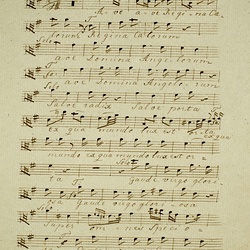 A ve a ve Regi na Cæ
lorum Regina Cælorum
Solo ave Domina Angelorum
Solo ave Domina Angelo rum
Solo Salve radix Salve porta
ex qua mundo lux est orta
ex qua
mundo ex qua mundo lux est or
ta T Gaude virgo glori
osa Gaude virgo glori osa
Super om nes Speci o